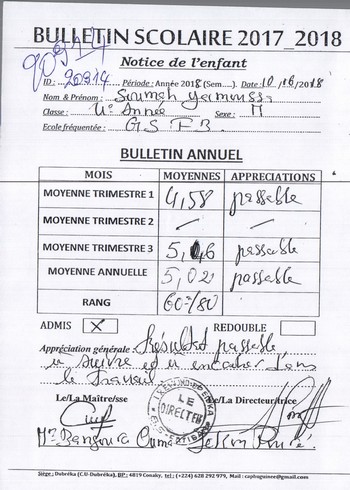 BULLETIN SCOLAIRE 2017_2018
Notice de l'enfant
ID : 20314 Période : Année 2018 (Sem.....). Date : 10/06/2018
Nom & Prénom : Soumah Yamoussa
Classe : 4e Année Sexe : M
Ecole fréquentée : G.S F3
BULLETIN ANNUEL
MOIS MOYENNES APPRECIATIONS
MOYENNE TRIMESTRE 1 4,58 passable
MOYENNE TRIMESTRE 2 — —
MOYENNE TRIMESTRE 3 5,46 passable
MOYENNE ANNUELLE 5,02 passable
RANG 60e/80
ADMIS X REDOUBLE
Appréciation générale : Résultat passable
à suivre et à encadrer dans
le travail
Le/La Maître/sse Le/La Directeur/trice
LE DIRECTEUR
Mr Bangoura Ouma
Siège : Dubréka (C.U-Dubréka), BP : 6819 Conaky, tel : (+224) 628 292 979, Mail : capbsguinee@gmail.com